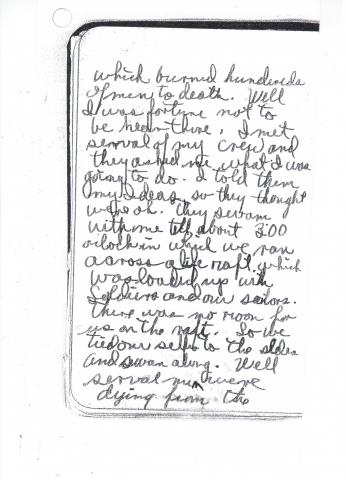 which burned hundreds
of men to death. Well
I was fortune not to
be near there. I met
serval of my crew and
they asked me what I was
going to do. I told them
my Ideas, so they thought
were ok. They swam
with me till about 3:00
oclock in which we ran
across a life raft. which
was loaded up with
soldiers and our sailors.
there was no room for
us on the raft. So we
tied our selfs to the sides
and swam along. Well
serval men were
dying from the